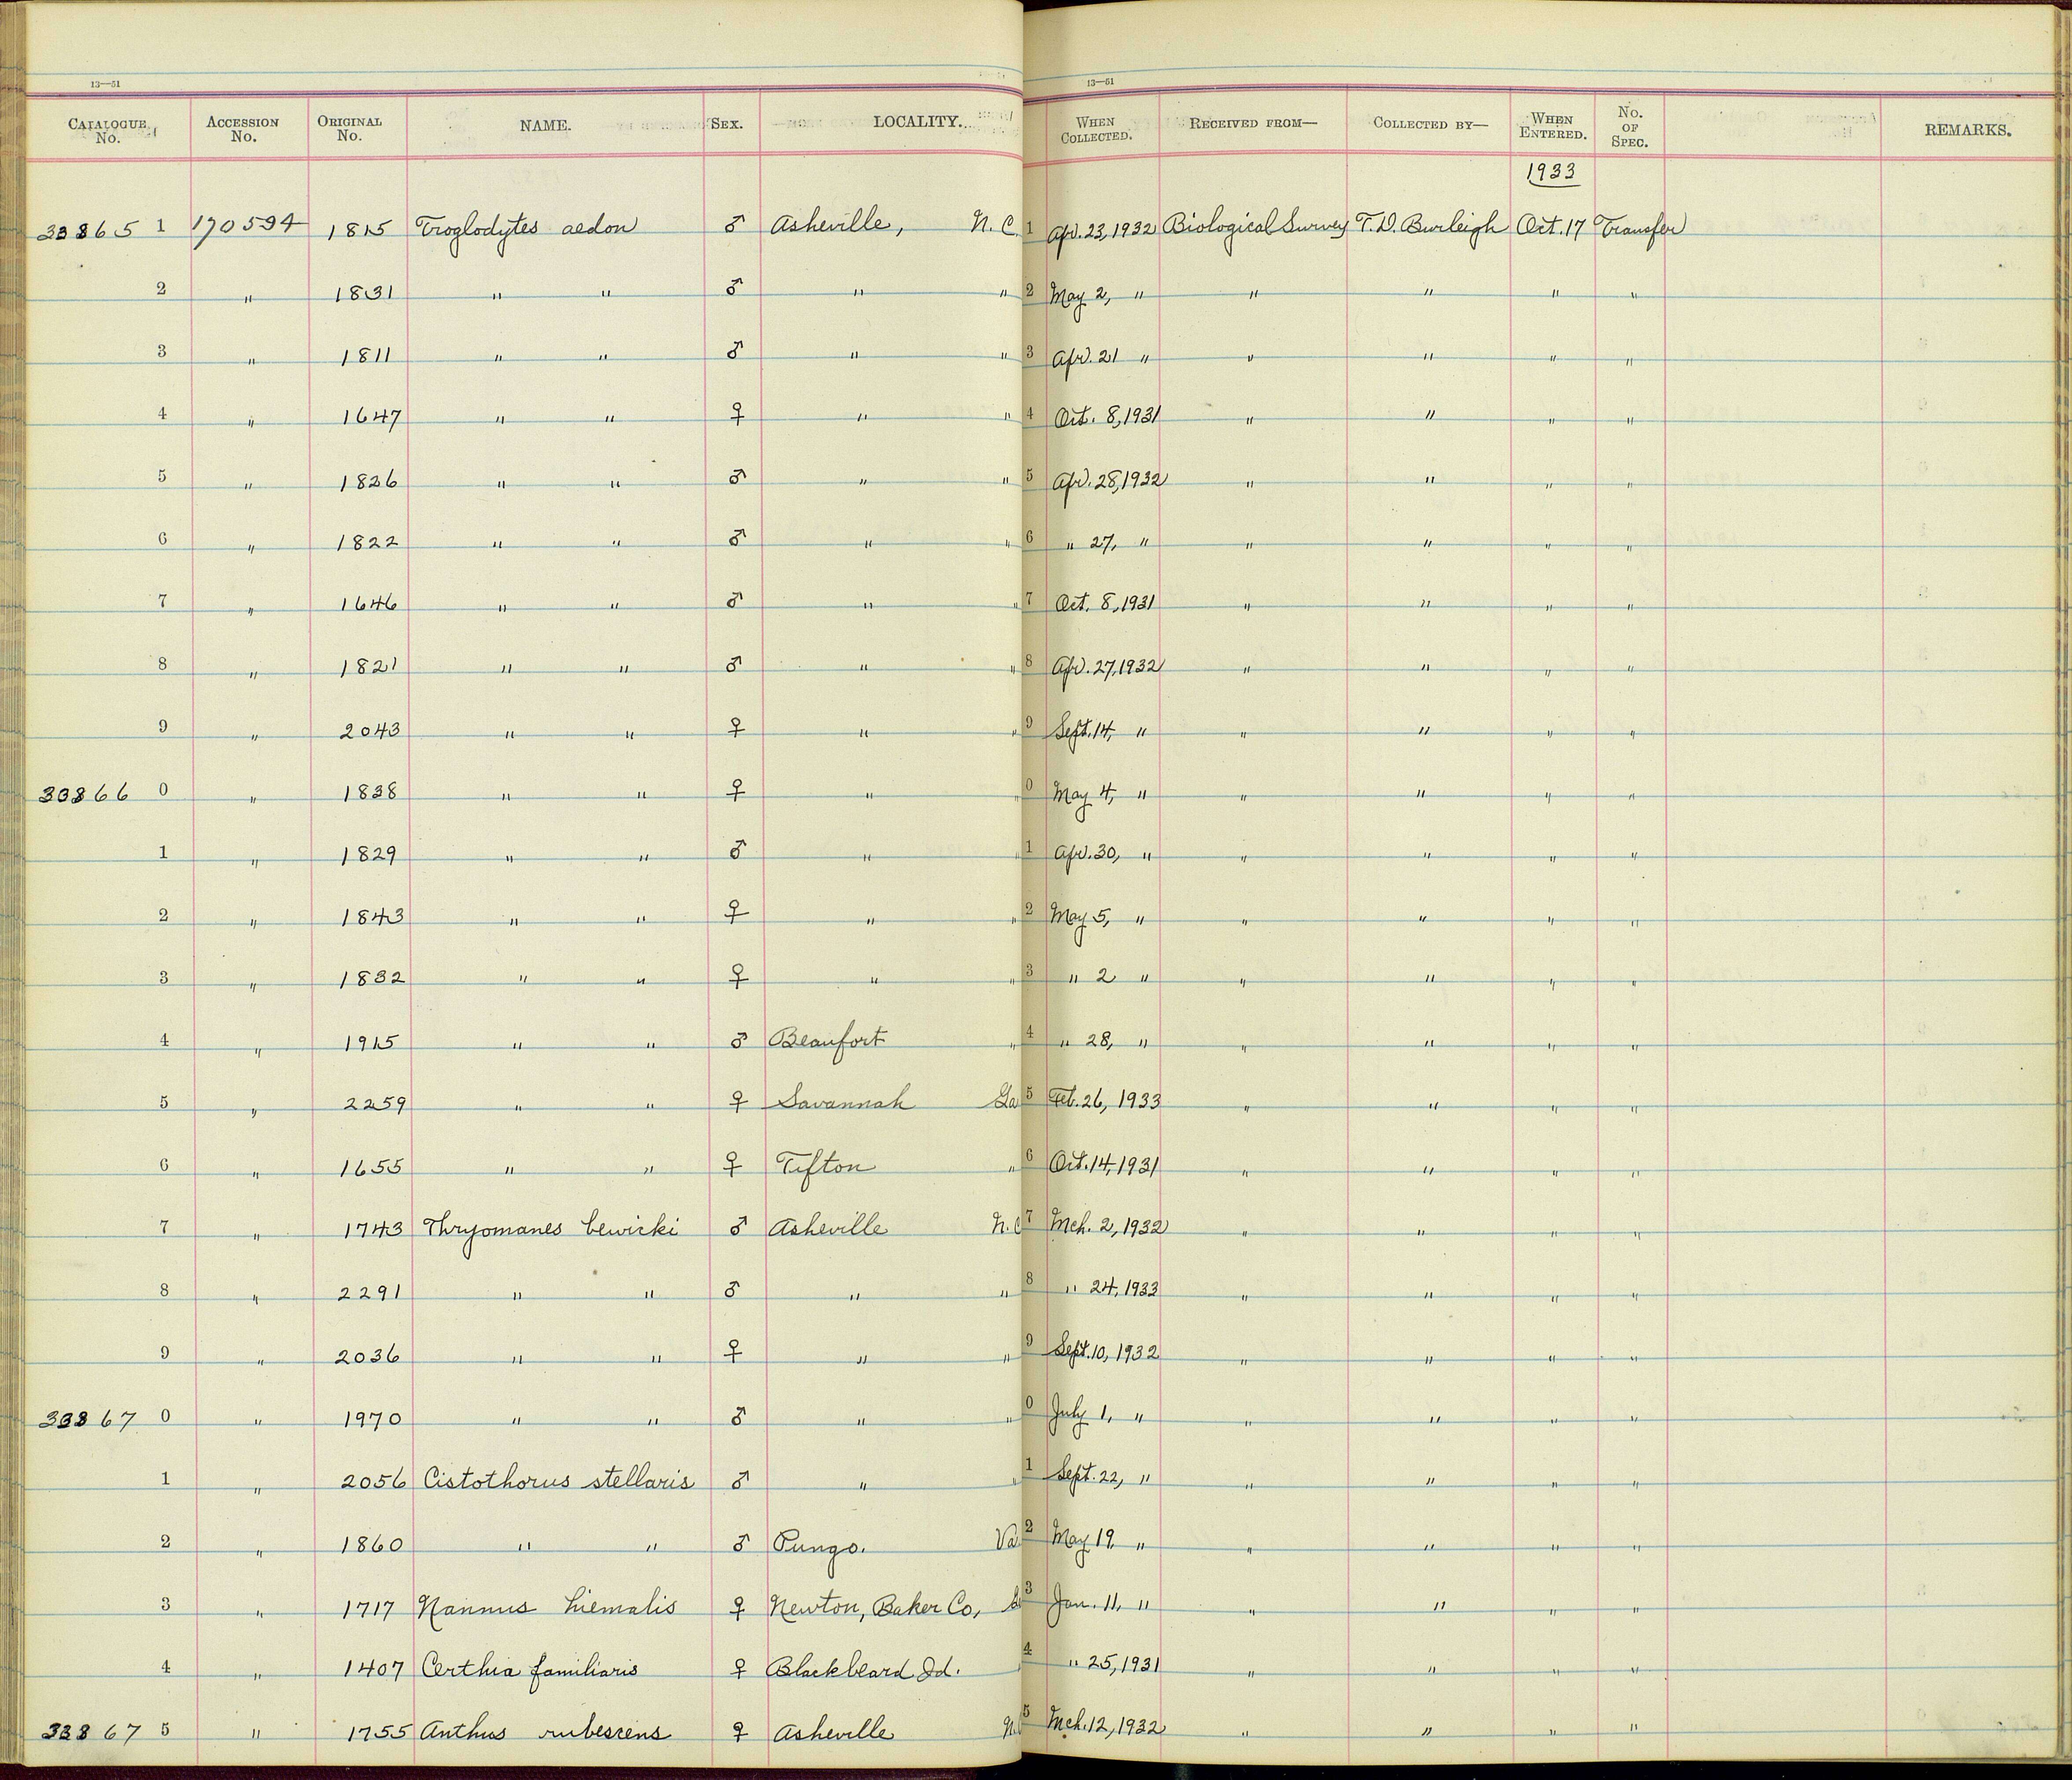 13—51 13—51
CATALOGUE No. ACCESSION No. ORIGINAL No. NAME. SEX. LOCALITY. WHEN COLLECTED. RECEIVED FROM— COLLECTED BY— WHEN ENTERED. No. OF SPEC. REMARKS.
1933
33865 1 170594 1815 Troglodytes aedon ♂ Asheville, N.C. 1 Apr. 23, 1932 Biological Survey T.D. Burleigh Oct. 17 Transfer
2 " 1831 " " ♂ " " 2 May 2, " " " " "
3 " 1811 " " ♂ " " 3 Apr. 21 " " " " "
4 " 1647 " " ♀ " " 4 Oct. 8, 1931 " " " "
5 " 1826 " " ♂ " " 5 Apr. 28, 1932 " " " "
6 " 1822 " " ♂ " " 6 " 27, " " " " "
7 " 1646 " " ♂ " " 7 Oct. 8, 1931 " " " "
8 " 1821 " " ♂ " " 8 Apr. 27, 1932 " " " "
9 " 2043 " " ♀ " " 9 Sept. 14, " " " " "
33866 0 " 1838 " " ♀ " " 0 May 4, " " " " "
1 " 1829 " " ♂ " " 1 Apr. 30, " " " " "
2 " 1843 " " ♀ " " 2 May 5, " " " " "
3 " 1832 " " ♀ " " 3 " 2 " " " " "
4 " 1915 " " ♂ Beaufort " 4 " 28, " " " " "
5 " 2259 " " ♀ Savannah Ga 5 Feb. 26, 1933 " " " "
6 " 1655 " " ♀ Tifton " 6 Oct. 14, 1931 " " " "
7 " 1743 Thryomanes bewicki ♂ Asheville N.C 7 Mch. 2, 1932 " " " "
8 " 2291 " " ♂ " " 8 " 24, 1933 " " " "
9 " 2036 " " ♀ " " 9 Sept. 10, 1932 " " " "
33867 0 " 1970 " " ♂ " " 0 July 1, " " " " "
1 " 2056 Cistothorus stellaris ♂ " " 1 Sept. 22, " " " " "
2 " 1860 " " ♂ Pungo. Va. 2 May 19, " " " " "
3 " 1717 Nannus hiemalis ♀ Newton, Baker Co, 3 Jan. 11, " " " " "
4 " 1407 Certhia familiaris ♀ Blackbeard Id. 4 " 25, 1931 " " " "
33867 5 " 1755 Anthus rubescens ♀ Asheville N. 5 Mch. 12, 1932 " " " "